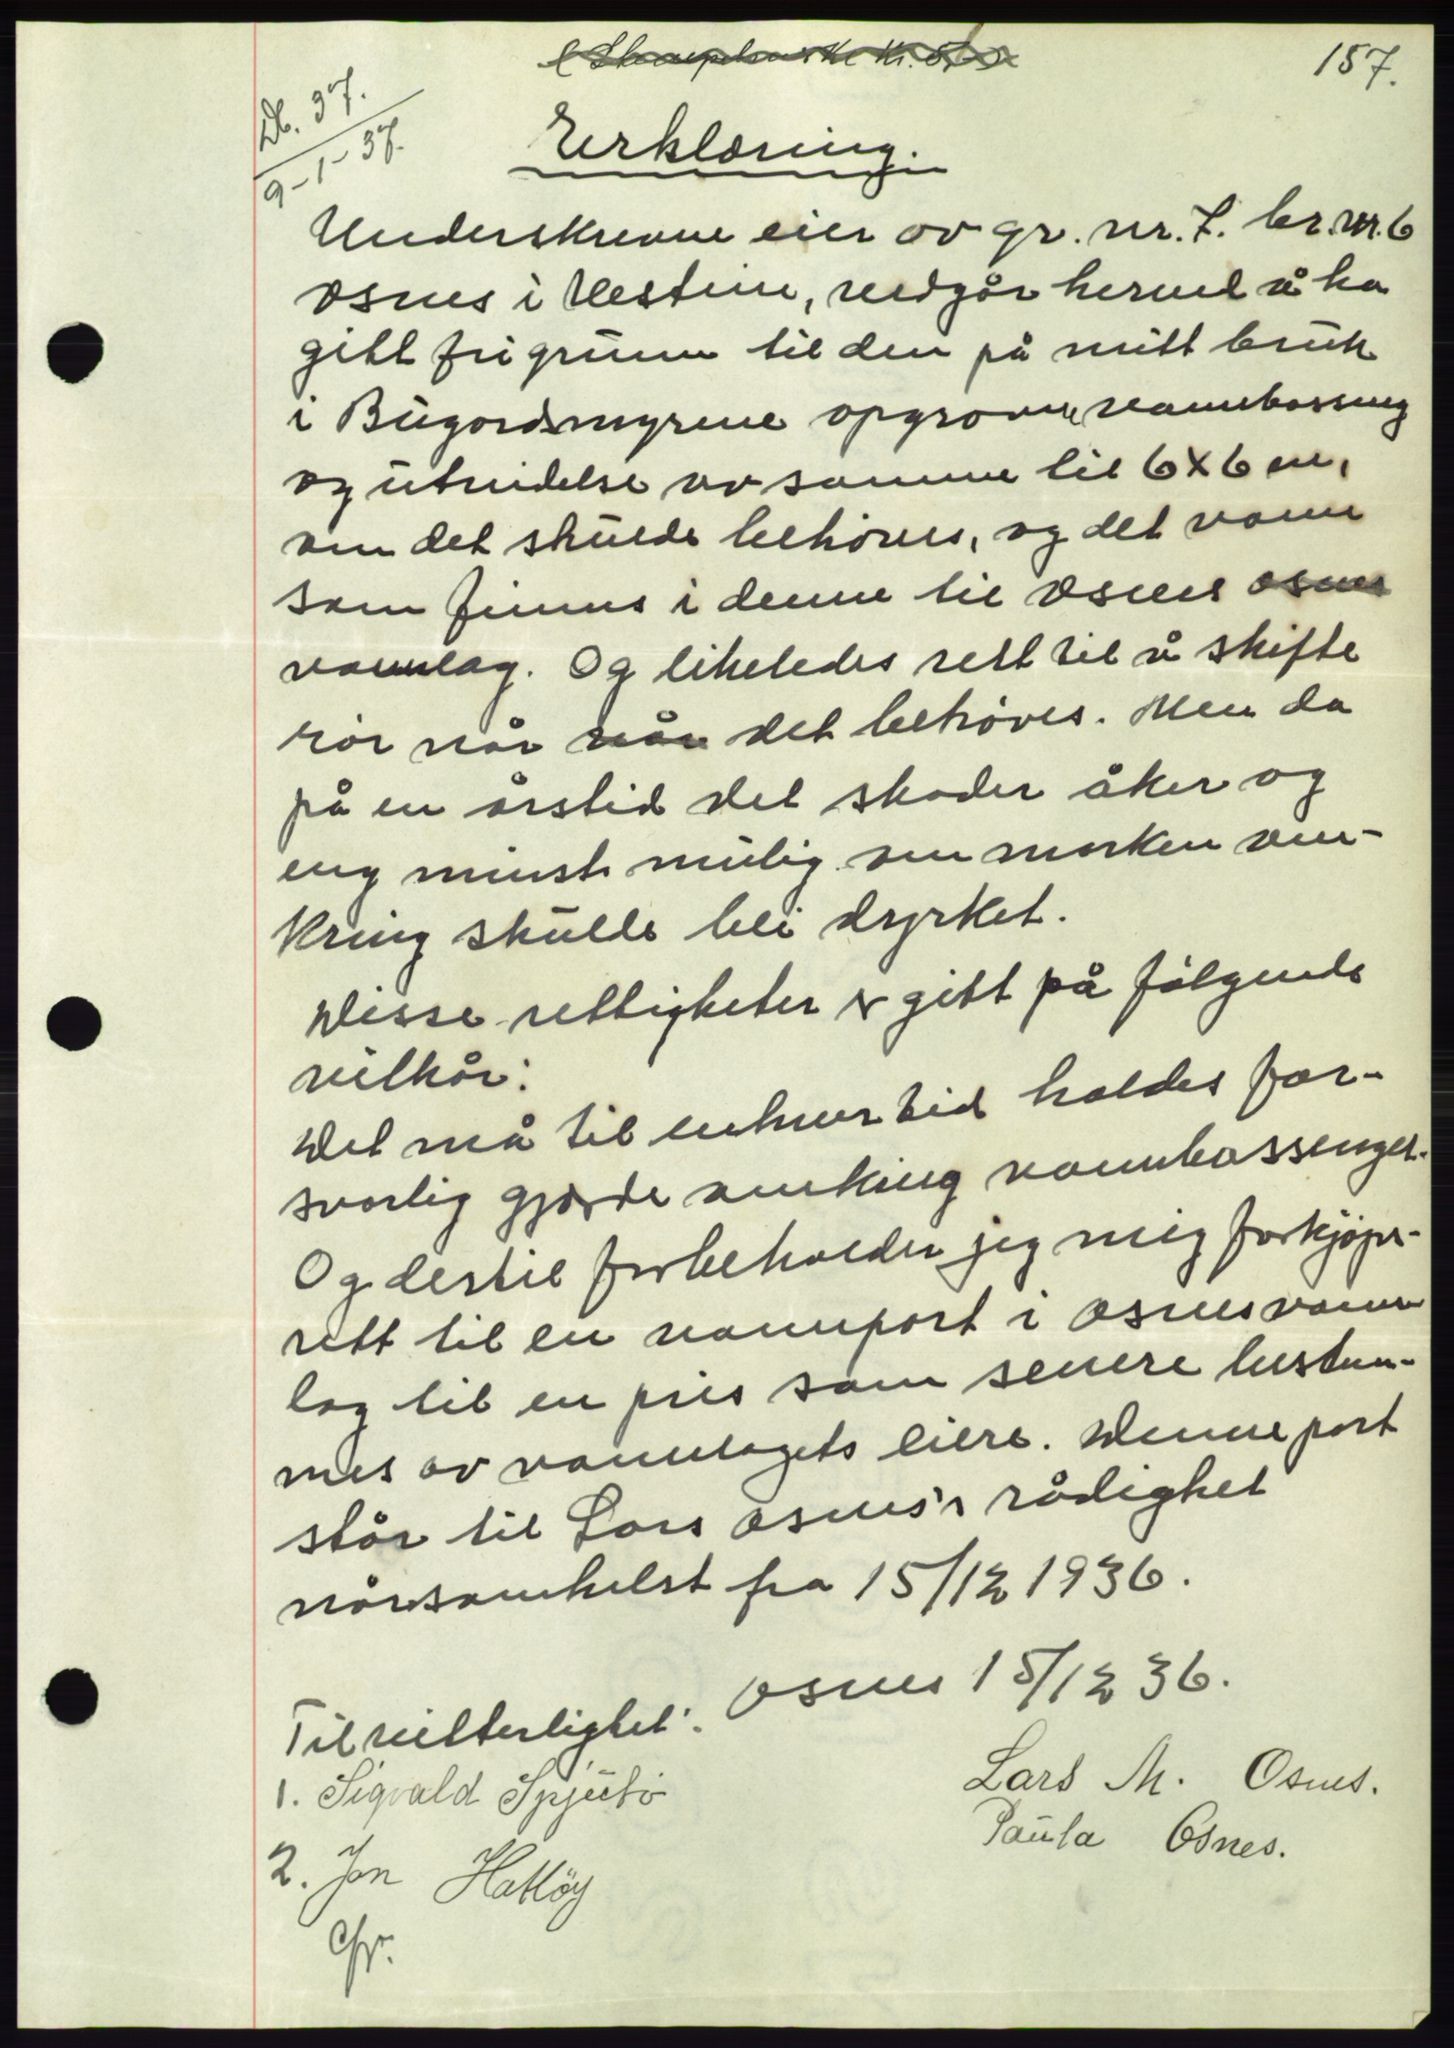 157.
Db. 37.
9-1-37.
Erklæring.
Underskrevne eier av gr. nr. 7. br. nr. 6
Osnes i Ulstein, vedgår herved å ha
gitt fri grunn til den på mitt bruk
i Bugardsmyrene opgravne vannbasseng
og utvidelse av samme til 6 x 6 m,
om det skulde behöves, og det vann
som finnes i denne til Osnes osnes
vannlag. Og likeledes rett til å skifte
rör når når det behöves. Men da
på en årstid det skader åker og
eng minst mulig om marken om-
kring skulde bli dyrket.
Disse rettigheter er gitt på fölgende
vilkår:
Det må til enhver tid holdes for-
svarlig gjerde omkring vannbassenget.
Og dertil forbeholder jeg mig forkjöps-
rett til en vannport i Osnes vann
lag til en pris som senere bestem-
mes av vannlagets eiere. Denne port
står til Lars Osnes's rådighet
nårsomhelst fra 15/12 1936.
Osnes 15/12 36.
Til vitterlighet:
Lars M. Osnes.
1. Sigvald Spjutö
Paula Osnes.
2. Jon Hatlöy